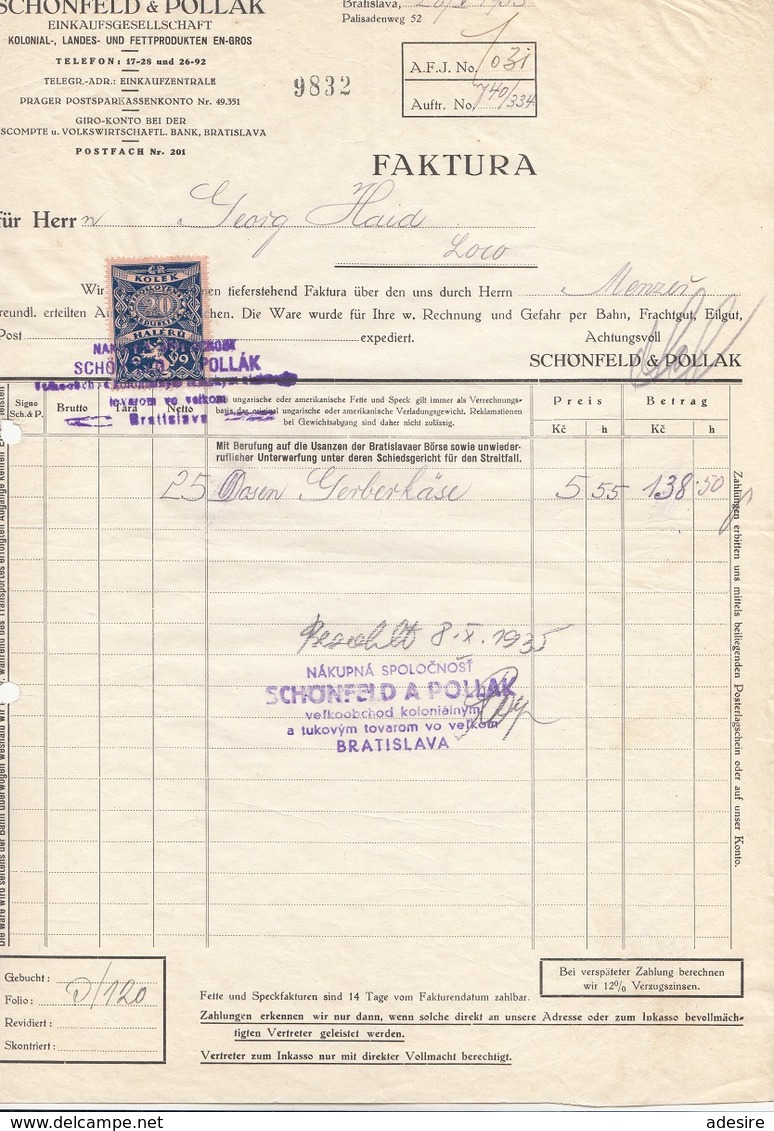 SCHÖNFELD & POLLÁK
EINKAUFSGESELLSCHAFT
KOLONIAL-, LANDES- UND FETTPRODUKTEN EN-GROS
TELEFON: 17-28 und 26-92
TELEGR.-ADR.: EINKAUFZENTRALE
PRAGER POSTSPARKASSENKONTO Nr. 49.351
GIRO-KONTO BEI DER
SCOMPTE u. VOLKSWIRTSCHAFTL. BANK, BRATISLAVA
POSTFACH Nr. 201
9832
Bratislava,
Palisadenweg 52
A.F.J. No. 1031
Auftr. No. 740/334
FAKTURA
für Herrn Georg Haid
Loco
Wir en tieferstehend Faktura über den uns durch Herrn Menzeš
reundl. erteilten Au chen. Die Ware wurde für Ihre w. Rechnung und Gefahr per Bahn, Frachtgut, Eilgut,
Post expediert. Achtungsvoll
SCHÖNFELD & POLLÁK
KOLEK
20
HALÉŘŮ
POLLÁK
tovarom vo veľkom
Bratislava
Signo Sch.& P.
Brutto
Tara
Netto
ungarische oder amerikanische Fette und Speck gilt immer als Verrechnungs-
basis das original ungarische oder amerikanische Verladungsgewicht. Reklamationen
bei Gewichtsabgang sind daher nicht zulässig.
Preis
Betrag
Kč h Kč h
Mit Berufung auf die Usanzen der Bratislavaer Börse sowie unwieder-
ruflicher Unterwerfung unter deren Schiedsgericht für den Streitfall.
25 Dosen Gerberkäse 5 55 138 50
Bezahlt 8.X.1935
NÁKUPNÁ SPOLOČNOSŤ
SCHÖNFELD A POLLÁK
veľkoobchod koloniálnym
a tukovým tovarom vo veľkom
BRATISLAVA
Zahlungen erbitten uns mittels beiliegenden Posterlagschein oder auf unser Konto.
Die Ware wird seitens der Bahn überwogen weshalb wir während des Transportes erfolgten Abgänge keinen Er leisten
Gebucht:
Folio: D/120
Revidiert:
Skontriert:
Bei verspäteter Zahlung berechnen
wir 12% Verzugszinsen.
Fette und Speckfakturen sind 14 Tage vom Fakturendatum zahlbar.
Zahlungen erkennen wir nur dann, wenn solche direkt an unsere Adresse oder zum Inkasso bevollmäch-
tigten Vertreter geleistet werden.
Vertreter zum Inkasso nur mit direkter Vollmacht berechtigt.
www.delcampe.net
adesire